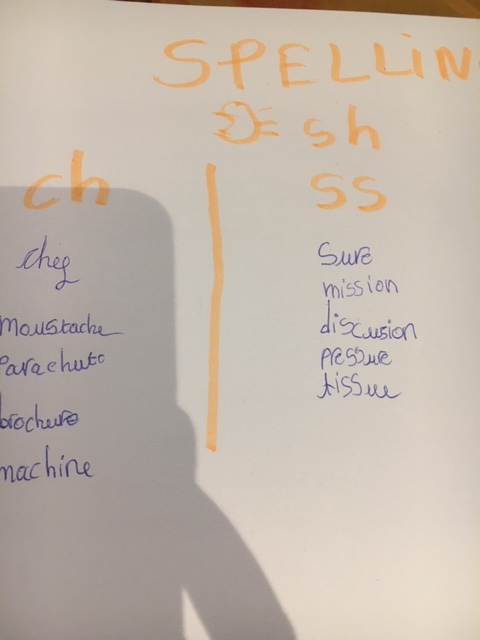 SPELLIN
sh
ch
ss
chef
moustache
Parachute
brochure
machine
Sure
mission
discusion
pressure
tissue